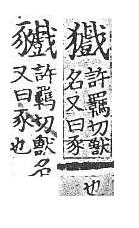 許羈切獸
名又曰豕
也
許羈切獸名
又曰豕也